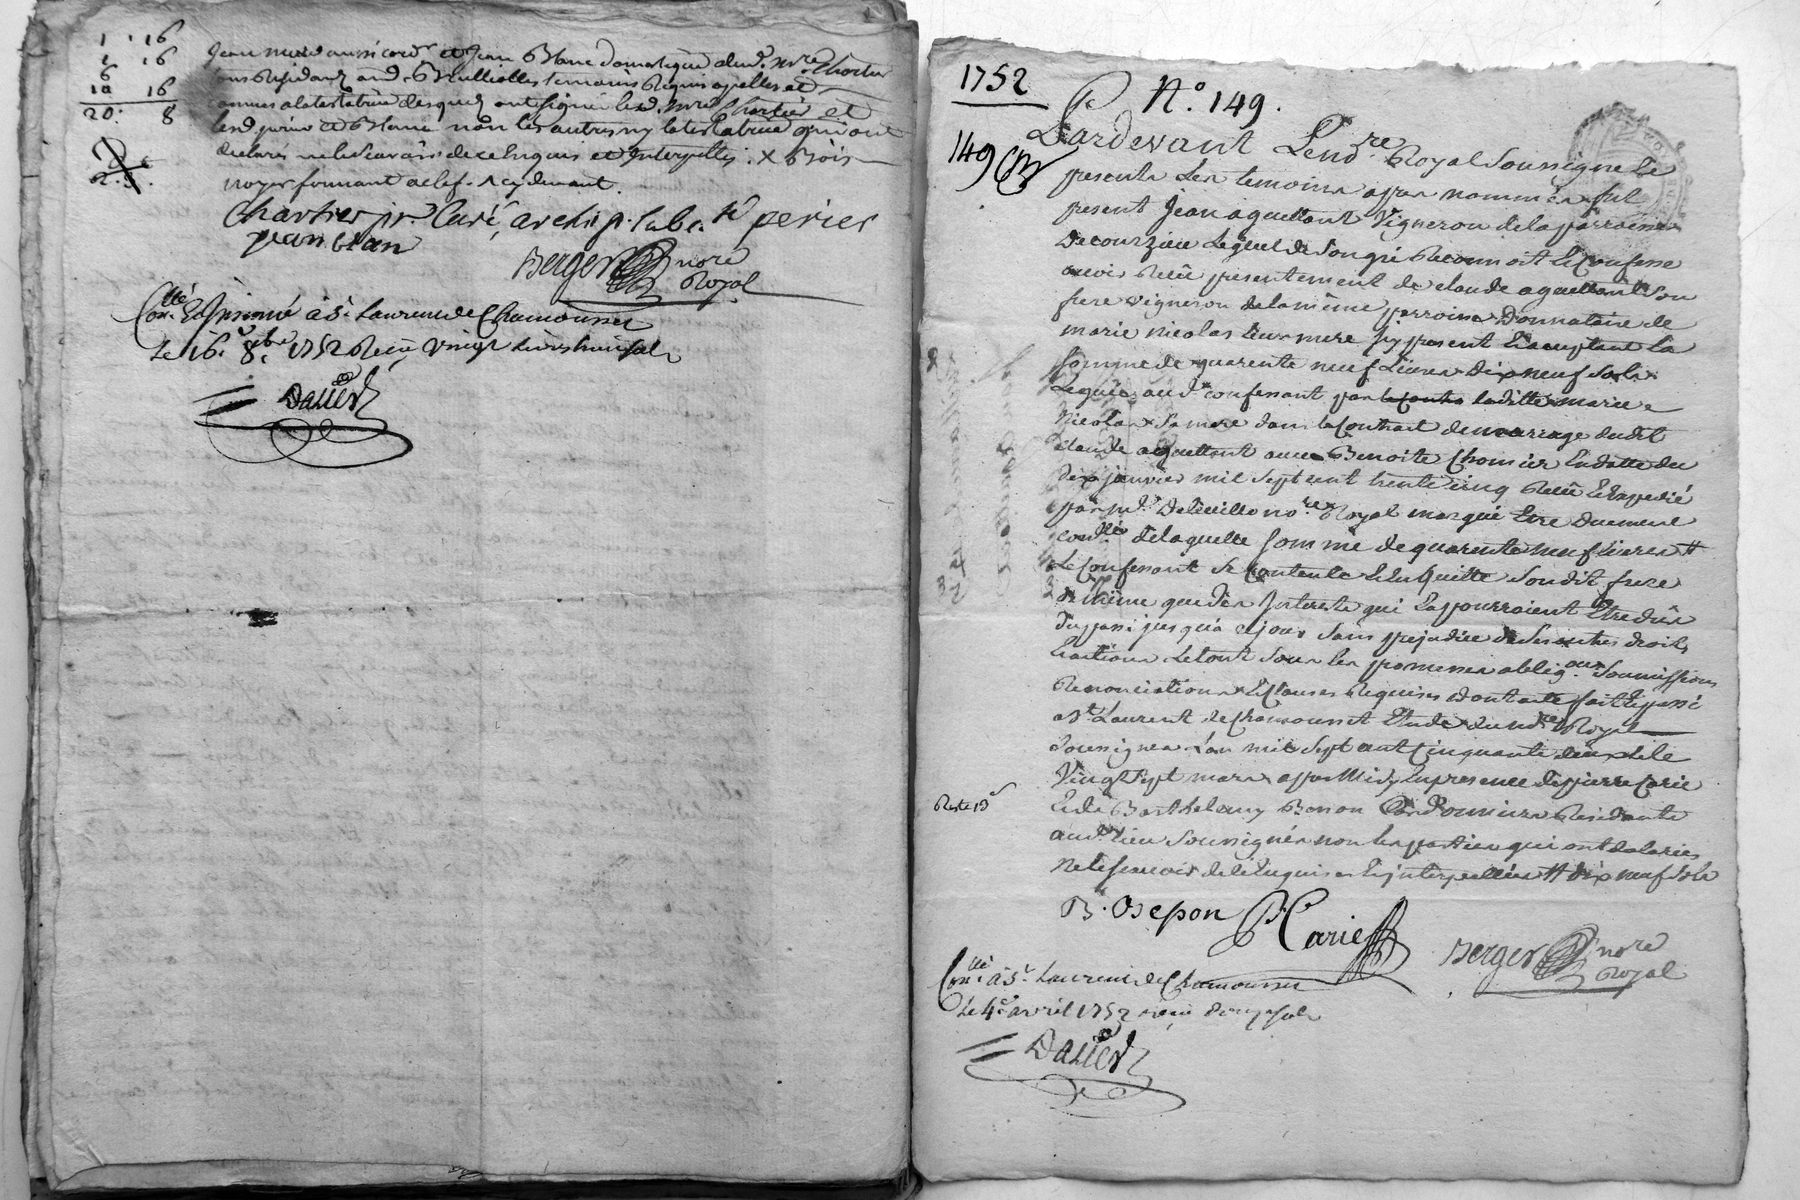 1 . 16
1 16
6
12 16
20 : 8
Jean
et Jean Blanc domestique dud. Mre Chartier
temoins Requis apelles et
alatestatrice desquels ont signé led. Mre Chartier et
non les autres ny latestatrice qui ont
declaré ne le scavoir de ce Enquis et Interpellés . x Bois
noyer fermant a clef
Chartier pr. Curé, archip. periel
jean blan
Berger nore
Royal
Con.llé à St. Laurent de Chamousset
Le 16e 8bre 1752 Receu vingt livres huit sols
Dallier
1752
N.o 149.
149
Pardevant Le nore Royal Soussigne Et
presents Les temoins apres nommés fut
present Jean aguettant Vigneron de la parroisse
De courzieu Lequel de Son gré Reconnoit Et Confesse
avoir Receu presentement de claude aguettant Son
frere vigneron de la même parroisse Donnataire de
marie nicolas Leur mere ycy present Et acceptant La
Somme de quarente neuf Livres Dix neuf Sols
aud. confessant par laditte marie
Nicolas Sa mere dans le Contrat de mariage dudit
Claude aguettant avec Benoite Chomier En datte du
Dix janvier mil sept cent trente cinq Receu Et Expedié
par Me. nore Royal Etre Duement
con.llé de laquelle Somme de quarente neuf Livres #
Le Confessant Se Contente Et En Quitte Son dit frere
de même que des Interets qui En pourroient Etre dus
du passé jusqu'à ce jour Sans prejudice de Ses autres droits
Et actions Le tout Sous Les promesses oblig.ons Soumissions
Renonciations Et Clauses Requises dont acte fait Et passé
a St. Laurent de Chamousset Etude du nore Royal
Soussigné L'an mil Sept cent Cinquante deux Et le
Vingt Sept mars apres Midy En presence de pierre Carie
Reste 13s
Et de Barthelemy Cordonniers Residants
aud. Lieu Soussignés non Les parties qui ont declarées
ne le scavoir de ce Enquises Et jnterpellées # dix neuf Sols
B. P. Carie
Berger nore
Royal
Con.llé à St. Laurent de Chamousset
Le 4e avril 1752 receu douze sols
Dallier